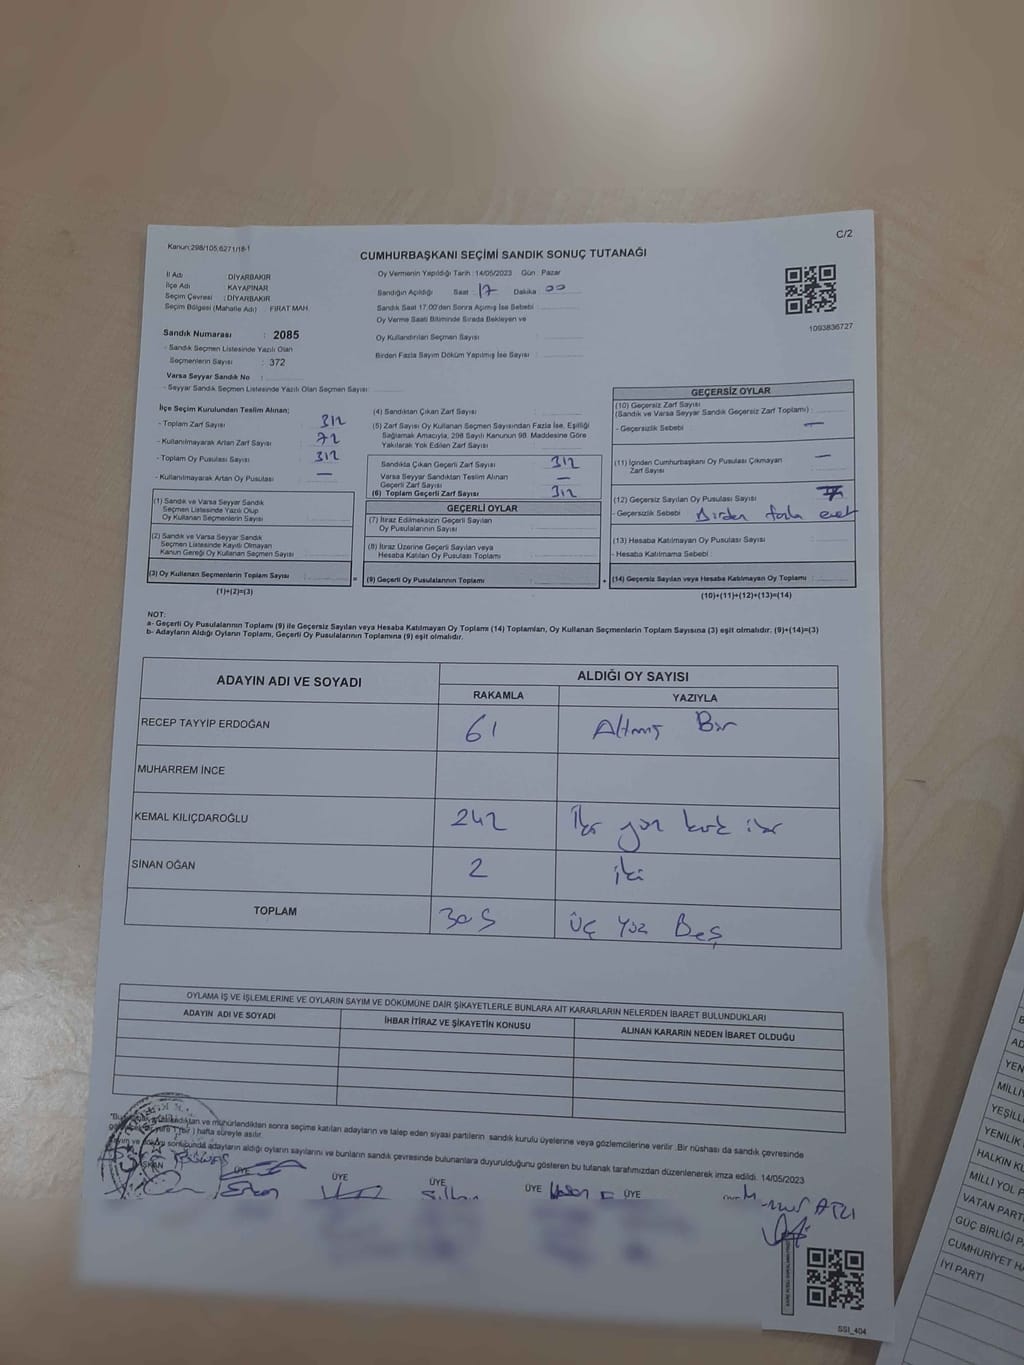 Kanun;298/105,6271/18-1
C/2
CUMHURBAŞKANI SEÇİMİ SANDIK SONUÇ TUTANAĞI
İl Adı : DİYARBAKIR
İlçe Adı : KAYAPINAR
Seçim Çevresi : DİYARBAKIR
Seçim Bölgesi (Mahalle Adı) FIRAT MAH.
Oy Vermenin Yapıldığı Tarih : 14/05/2023 Gün : Pazar
Sandığın Açıldığı Saat : 17 Dakika : 00
Sandık Saat 17.00'den Sonra Açımış İse Sebebi :
Oy Verme Saati Bitiminde Sırada Bekleyen ve
Oy Kullandırılan Seçmen Sayısı :
Birden Fazla Sayım Döküm Yapılmış İse Sayısı :
1093836727
Sandık Numarası : 2085
- Sandık Seçmen Listesinde Yazılı Olan
Seçmenlerin Sayısı : 372
Varsa Seyyar Sandık No :
- Seyyar Sandık Seçmen Listesinde Yazılı Olan Seçmen Sayısı:
İlçe Seçim Kurulundan Teslim Alınan;
- Toplam Zarf Sayısı : 312
- Kullanılmayarak Artan Zarf Sayısı : 72
- Toplam Oy Pusulası Sayısı : 312
- Kullanılmayarak Artan Oy Pusulası : —
(1) Sandık ve Varsa Seyyar Sandık
Seçmen Listesinde Yazılı Olup
Oy Kullanan Seçmenlerin Sayısı :
(2) Sandık ve Varsa Seyyar Sandık
Seçmen Listesinde Kayıtlı Olmayan
Kanun Gereği Oy Kullanan Seçmen Sayısı :
(3) Oy Kullanan Seçmenlerin Toplam Sayısı : =
(1)+(2)=(3)
(4) Sandıktan Çıkan Zarf Sayısı :
(5) Zarf Sayısı Oy Kullanan Seçmen Sayısından Fazla İse, Eşitliği
Sağlamak Amacıyla, 298 Sayılı Kanunun 98. Maddesine Göre
Yakılarak Yok Edilen Zarf Sayısı :
Sandıkta Çıkan Geçerli Zarf Sayısı : 312
Varsa Seyyar Sandıktan Teslim Alınan
Geçerli Zarf Sayısı : —
(6) Toplam Geçerli Zarf Sayısı : 312
GEÇERLİ OYLAR
(7) İtiraz Edilmeksizin Geçerli Sayılan
Oy Pusulalarının Sayısı :
(8) İtiraz Üzerine Geçerli Sayılan veya
Hesaba Katılan Oy Pusulası Toplamı :
(9) Geçerli Oy Pusulalarının Toplamı : +
GEÇERSİZ OYLAR
(10) Geçersiz Zarf Sayısı
(Sandık ve Varsa Seyyar Sandık Geçersiz Zarf Toplamı) :
- Geçersizlik Sebebi : —
(11) İçinden Cumhurbaşkanı Oy Pusulası Çıkmayan : —
Zarf Sayısı
(12) Geçersiz Sayılan Oy Pusulası Sayısı : 7
- Geçersizlik Sebebi : Birden fazla evet
(13) Hesaba Katılmayan Oy Pusulası Sayısı :
- Hesaba Katılmama Sebebi :
(14) Geçersiz Sayılan veya Hesaba Katılmayan Oy Toplamı :
(10)+(11)+(12)+(13)=(14)
NOT:
a- Geçerli Oy Pusulalarının Toplamı (9) ile Geçersiz Sayılan veya Hesaba Katılmayan Oy Toplamı (14) Toplamları, Oy Kullanan Seçmenlerin Toplam Sayısına (3) eşit olmalıdır. (9)+(14)=(3)
b- Adayların Aldığı Oyların Toplamı, Geçerli Oy Pusulalarının Toplamına (9) eşit olmalıdır.
ADAYIN ADI VE SOYADI ALDIĞI OY SAYISI
RAKAMLA YAZIYLA
RECEP TAYYİP ERDOĞAN 61 Altmış Bir
MUHARREM İNCE
KEMAL KILIÇDAROĞLU 242 İki yüz kırk iki
SİNAN OĞAN 2 iki
TOPLAM 305 Üç Yüz Beş
OYLAMA İŞ VE İŞLEMLERİNE VE OYLARIN SAYIM VE DÖKÜMÜNE DAİR ŞİKAYETLERLE BUNLARA AİT KARARLARIN NELERDEN İBARET BULUNDUKLARI
ADAYIN ADI VE SOYADI İHBAR İTİRAZ VE ŞİKAYETİN KONUSU ALINAN KARARIN NEDEN İBARET OLDUĞU
ve mühürlendikten sonra seçime katılan adayların ve talep eden siyasi partilerin sandık kurulu üyelerine veya gözlemcilerine verilir .Bir nüshası da sandık çevresinde
1 (bir ) hafta süreyle asılır.
sonucunda adayların aldığı oyların sayılarını ve bunların sandık çevresinde bulunanlara duyurulduğunu gösteren bu tutanak tarafımızdan düzenlenerek imza edildi. 14/05/2023
ÜYE ÜYE ÜYE ÜYE ÜYE
SSI_404
AD
YEN
MİLLİY
YEŞİLL
YENİLİK
HALKIN KU
MİLLİ YOL P
VATAN PARTİ
GÜÇ BİRLİĞİ P
CUMHURİYET HA
İYİ PARTİ